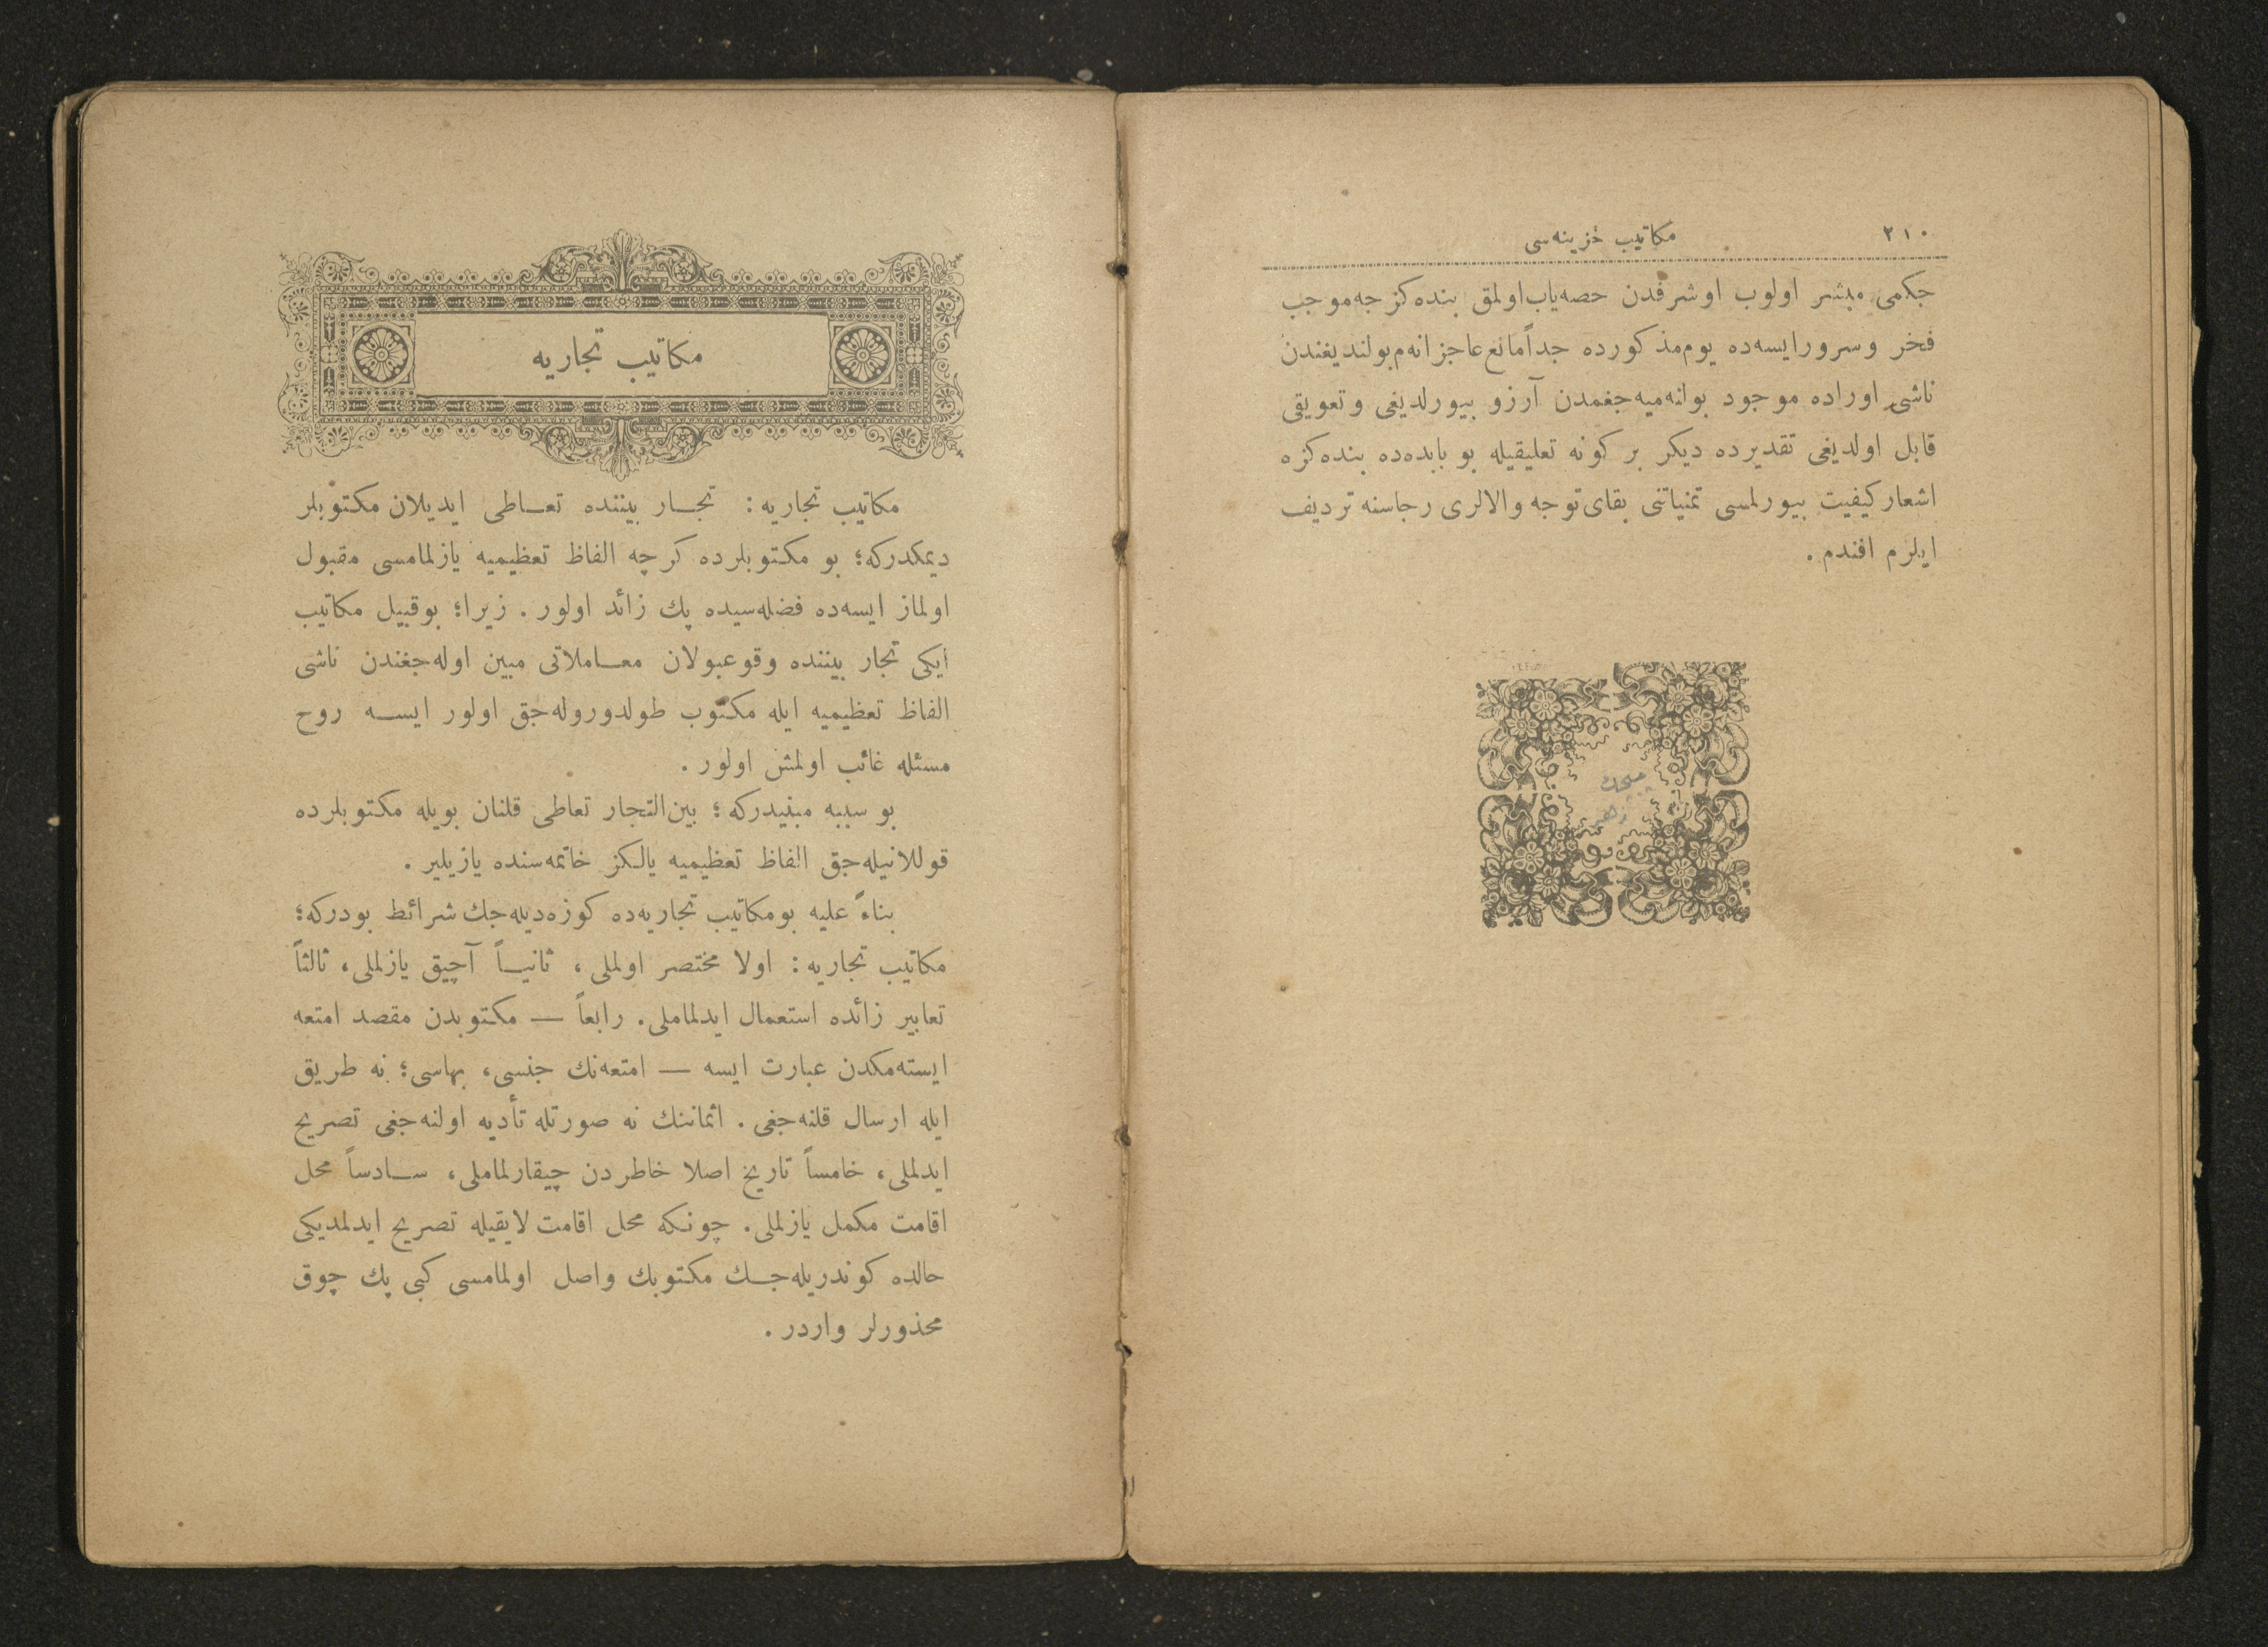 ٢١٠
مكاتيب خزينه‌سى
جكمى مبشر اولوب اوشرفدن حصه‌ياب اولمق بنده‌كزجه موجب
فخر وسرور ايسه‌ده يوم مذكورده جداً مانع عاجزانه‌م بولنديغندن
ناشى اوراده موجود بولنه‌ميه‌جغمدن آرزو بيورلديغى وتعويقى
قابل اولديغى تقديرده ديكر بر كونه تعليقيله بو بابده‌ده بنده‌كزه
اشعار كيفيت بيورلمسى تمنياتنى بقاى توجه والالرى رجاسنه ترديف
ايلرم افندم .
مكاتيب تجاريه
مكاتيب تجاريه : تجـار بيننده تعـاطى ايديلان مكتوبلر
ديمكدركه؛ بو مكتوبلرده كرچه الفاظ تعظيميه يازلمامسى مقبول
اولماز ايسه‌ده فضله‌سيده پك زائد اولور . زيرا؛ بوقبيل مكاتيب
ايكى تجار بيننده وقوعبولان معـاملاتى مبين اوله‌جغندن ناشى
الفاظ تعظيميه ايله مكتوب طولدوروله‌جق اولور ايسـه روح
مسئله غائب اولمش اولور .
بو سببه مبنيدركه ؛ بين‌التجار تعاطى قلنان بويله مكتوبلرده
قوللانيله‌جق الفاظ تعظيميه يالكز خاتمه‌سنده يازيلير .
بناءً عليه بومكاتيب تجاريه‌ده كوزه‌ديله‌جك شرائط بودركه؛
مكاتيب تجاريه : اولا مختصر اولملى ، ثانيـاً آچيق يازلملى ، ثالثاً
تعابير زائده استعمال ايدلماملى . رابعاً — مكتوبدن مقصد امتعه
ايسته‌مكدن عبارت ايسه — امتعه‌نك جنسى ، بهاسى؛ نه طريق
ايله ارسال قلنه‌جغى . اثماننك نه صورتله تأديه اولنه‌جغى تصريح
ايدلملى ، خامساً تاريخ اصلا خاطردن چيقارلماملى ، سـادساً محل
اقامت مكمل يازلملى . چونكه محل اقامت لايقيله تصريح ايدلمديكى
حالده كوندريله‌جـك مكتوبك واصل اولمامسى كبى پك چوق
محذورلر واردر .